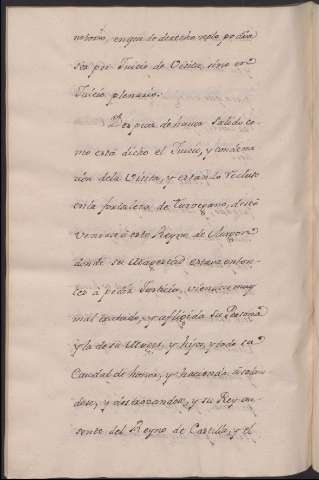 notorio, en que de derecho no lo podia
ser por Juicio de Visita, sino en
Juicio plenario.
Despues de haver salido, co-
mo está dicho el Juicio, y condena-
cion de la Visita, y estando recluso
en la fortaleza de Turuegano, deseó
venirse á este Reyno de Aragon
donde su Magestad estava enton-
ces á pedir Justicia, viendose muy
mal tratado, y afligida su Persona
y la de su Muger, y hijos, y todo su
Caudal de honor, y hacienda
y destrozandose, y su Rey au-
sente del Reyno de Castilla, y el